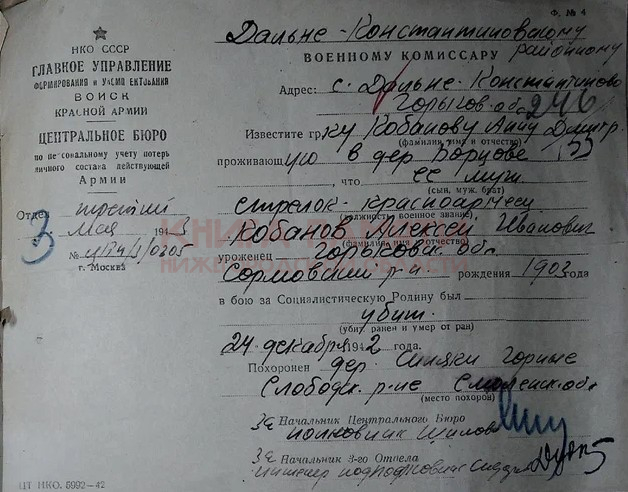 Ф. № 4
НКО СССР
ГЛАВНОЕ УПРАВЛЕНИЕ
ФОРМИРОВАНИЯ и УКОМПЛЕКТОВАНИЯ
ВОЙСК
КРАСНОЙ АРМИИ
ЦЕНТРАЛЬНОЕ БЮРО
по персональному учету потерь
личного состава действующей
Армии
Отдел третий
3 мая 1943
№
г. Москва
Дальне-Константиновскому
ВОЕННОМУ КОМИССАРУ районному
Адрес: с. Дальне-Константиново
Горьков. обл 246
Известите гр-ку Кобанову Анну Дмитр.
(фамилия, имя и отчество)
проживающую в дер Борцове
, что ее муж
(сын, муж, брат)
стрелок-красноармеец
(должность военное звание)
Кобанов Алексей Иванович
(фамилия, имя и отчество)
уроженец Горьков. обл.
Сормовский р-н рождения 1903 года
в бою за Социалистическую Родину был
убит.
(убит, ранен и умер от ран)
24 декабря 1942 года.
Похоронен дер.
Слободск. р-не Смоленск. обл
(место похорон)
за Начальник Центрального Бюро
полковник Шилов
за Начальник 3-го Отдела
ЦТ НКО. 5992-42
КНИГА ПАМЯТИ
НИЖЕГОРОДСКОЙ ОБЛАСТИ